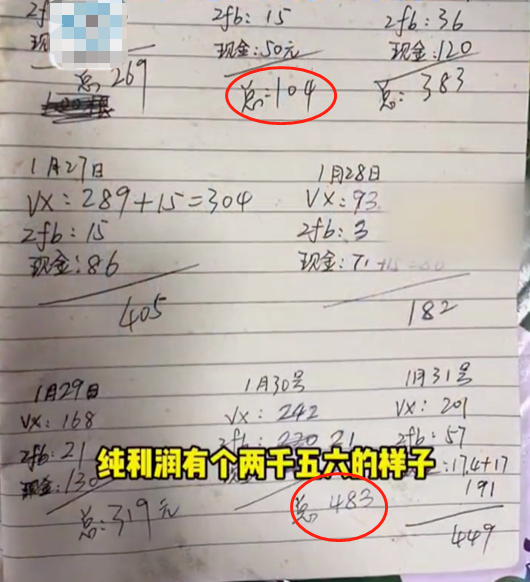 2fb: 15
现金:50元
总:104
2fb:36
现金:120
总:383
现
总269
1月27日
VX:289+15=304
2fb:15
现金:86
405
1月28日
VX:93
2fb:3
现金:71+15
182
1月29日
VX:168
2fb:21
现金:130
总:319元
1月30号
VX:242
总 483
1月31号
VX:201
2fb:57
:17.4+17
191
449
纯利润有个两千五六的样子